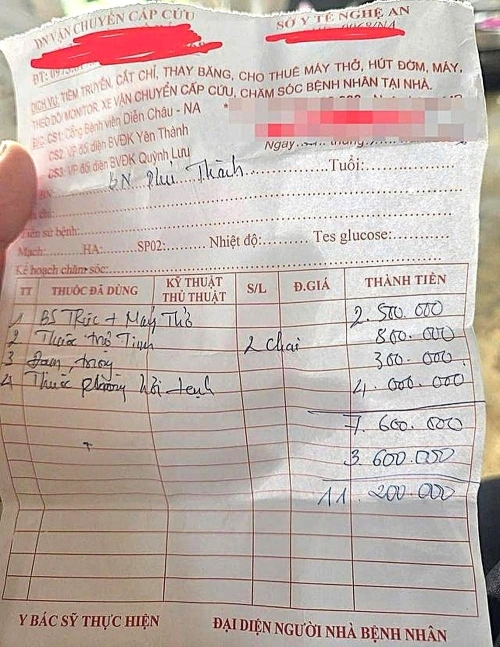 DN VẬN CHUYỂN CẤP CỨU
SỞ Y TẾ NGHỆ AN
DỊCH VỤ: TIÊM TRUYỀN, CẮT CHỈ, THAY BĂNG, CHO THUÊ MÁY THỞ, HÚT ĐỜM, MÁY,
THEO DÕI MONITOR. XE VẬN CHUYỂN CẤP CỨU, CHĂM SÓC BỆNH NHÂN TẠI NHÀ.
ĐC: CS1: Cổng Bệnh viện Diễn Châu - NA
CS2: VP đối diện BVĐK Yên Thành
CS3: VP đối diện BVĐK Quỳnh Lưu
BN Phú Thành Tuổi:
Tiền sử bệnh:
Mạch: HA: SP02: Nhiệt độ: Tes glucose:
Kế hoạch chăm sóc:
TT THUỐC ĐÃ DÙNG KỸ THUẬT THỦ THUẬT S/L Đ.GIÁ THÀNH TIỀN
1 BS Trực + Máy Thở 2.500.000
2 Thuốc trợ Tim 2 chai 800.000
3 300.000
4 Thuốc phòng hồi 4.000.000
7.600.000
3.600.000
11.200.000
Y BÁC SỸ THỰC HIỆN ĐẠI DIỆN NGƯỜI NHÀ BỆNH NHÂN